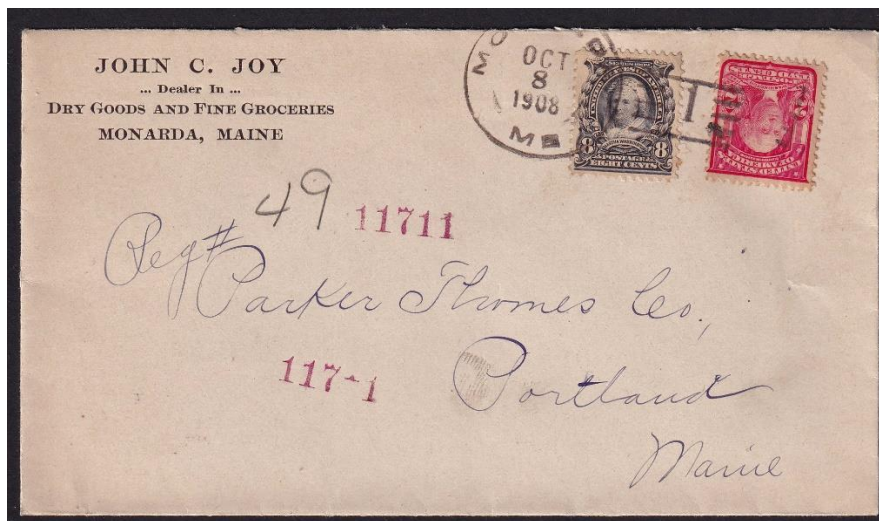 JOHN C. JOY
... Dealer In ...
DRY GOODS AND FINE GROCERIES
MONARDA, MAINE
OCT
8
1908
ME
8 8
POSTAGE
EIGHT CENTS
49
11711
Reg#
Parker Thomes Co.,
117-1
Portland
Maine